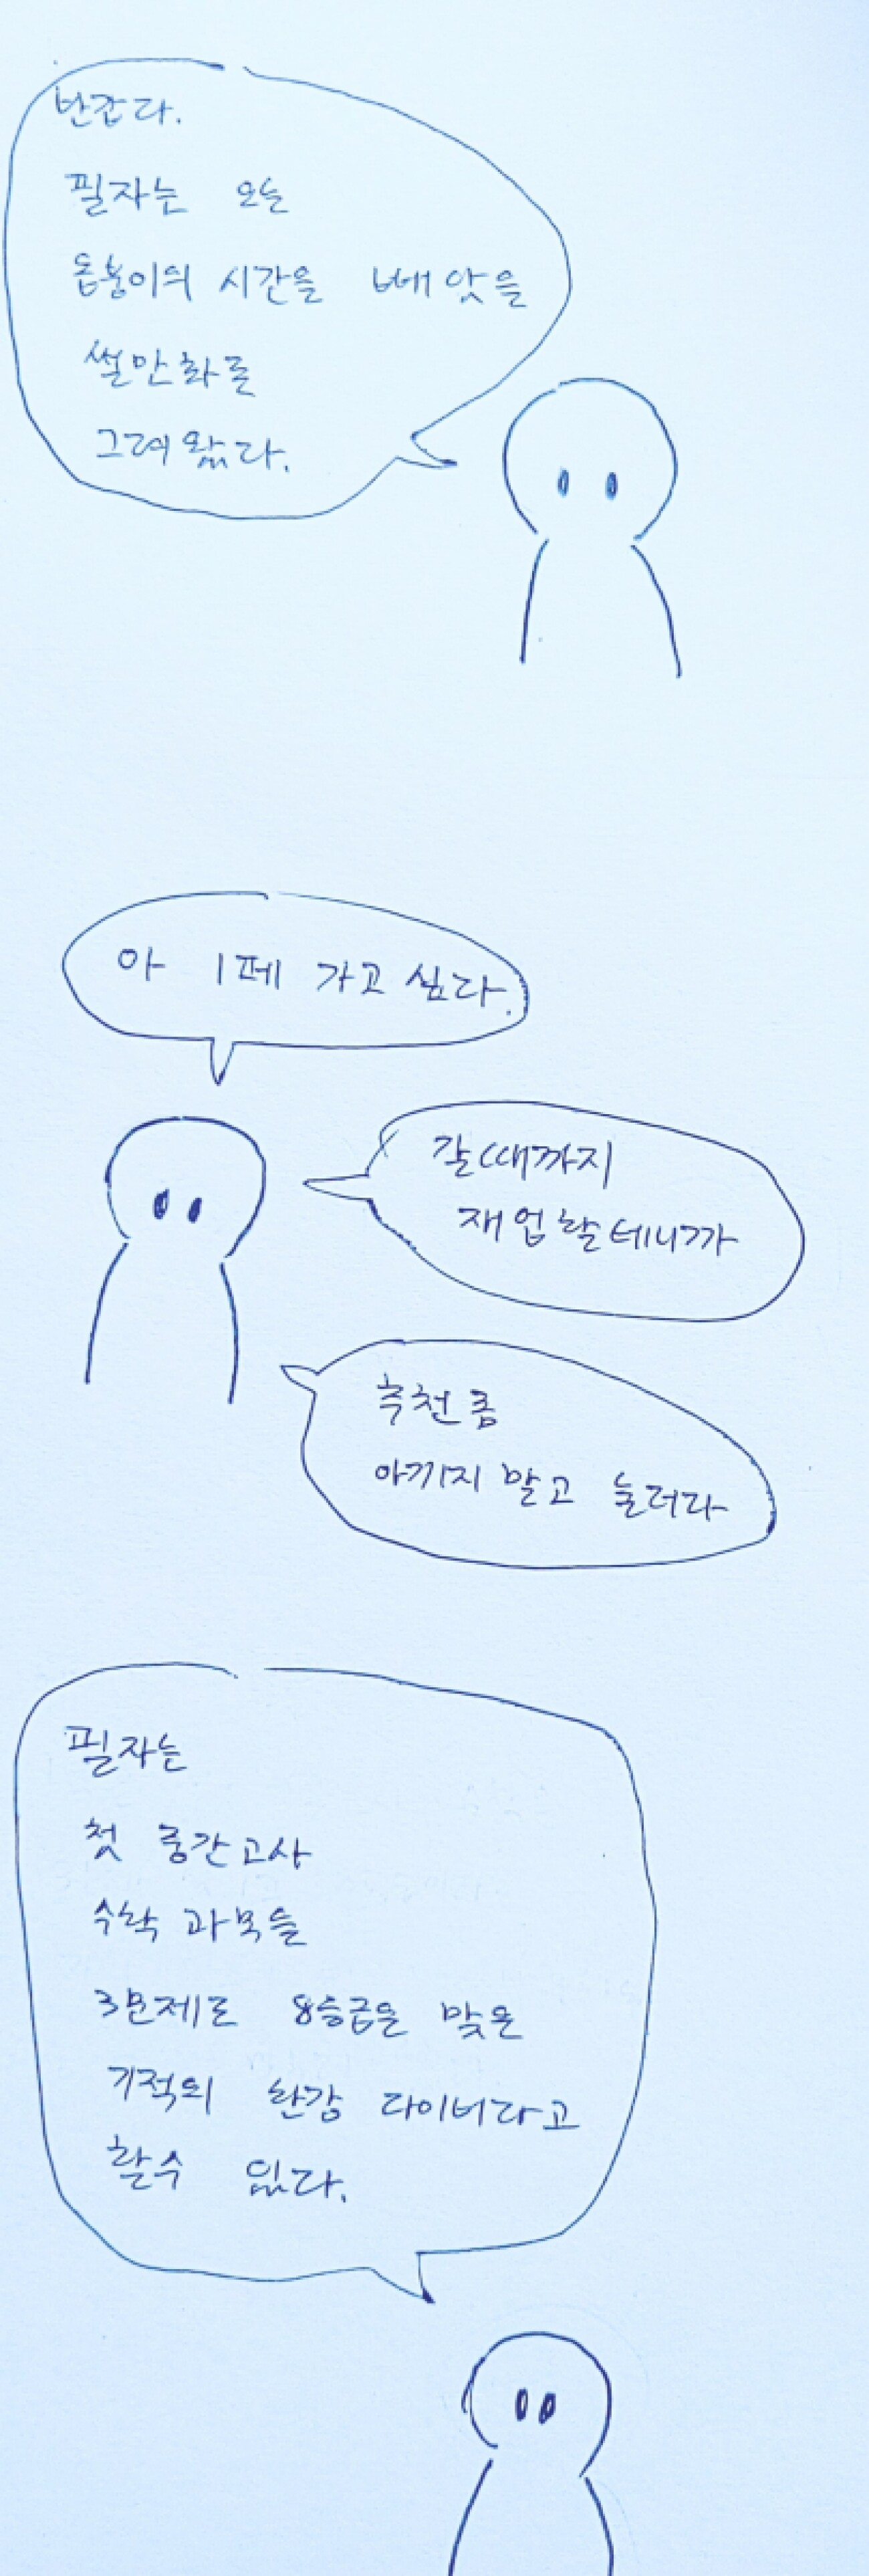 반갑다.
필자는 오늘
돔붕이의 시간을 빼앗을
썰만화를
그려왔다.
아 1페 가고 싶다.
갈때까지
재업할테니까
추천좀
아끼지 말고 눌러라
필자는
첫 중간고사
수학 과목을
3문제로 8등급을 맞은
기적의 한강 다이버라고
할수 있다.